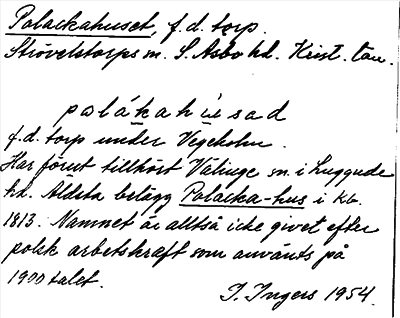 Polackahuset, f.d. torp.
Strövelstorps sn. S. Åsbo hd. Krist. län.
polákahùsad
f.d. torp under Vegeholm.
Har förut tillhört Välinge sn. i Luggude
hd. Äldsta belägg Polacka-hus i kb.
1813. Namnet är alltså icke givet efter
polsk arbetskraft som använts på
1900 talet.
I. Ingers 1954.